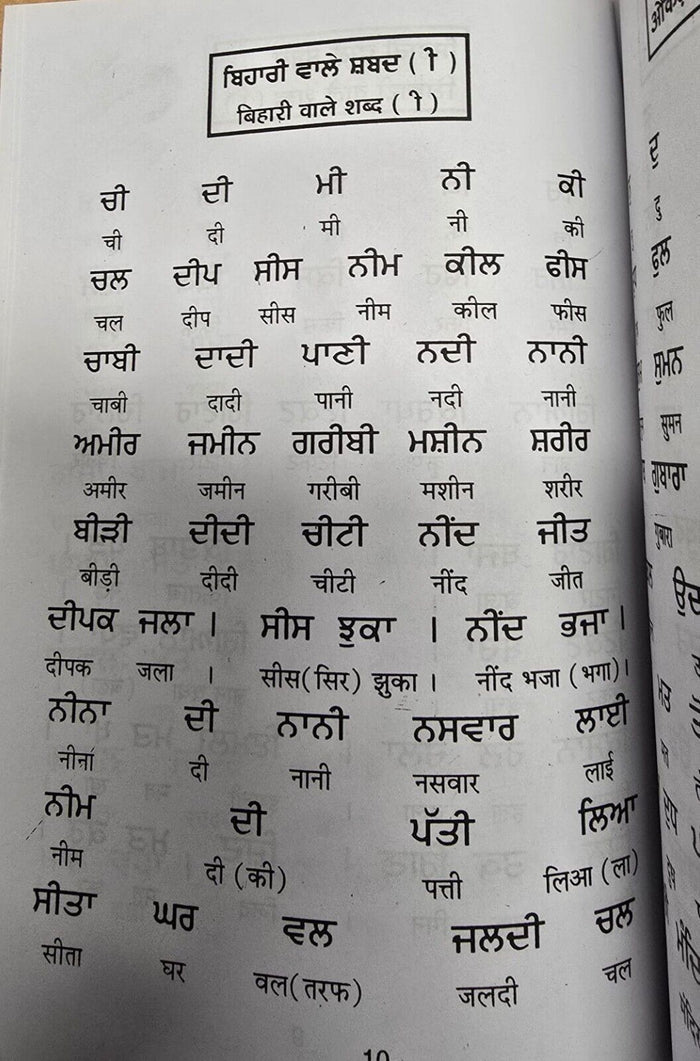 ਬਿਹਾਰੀ ਵਾਲੇ ਸ਼ਬਦ ( ੀ )
बिहारी वाले शब्द ( ी )
ਚੀ ਦੀ ਮੀ ਨੀ ਕੀ
ची दी मी नी की
ਚਲ ਦੀਪ ਸੀਸ ਨੀਮ ਕੀਲ ਫੀਸ
चल दीप सीस नीम कील फीस
ਚਾਬੀ ਦਾਦੀ ਪਾਣੀ ਨਦੀ ਨਾਨੀ
चाबी दादी पानी नदी नानी
ਅਮੀਰ ਜਮੀਨ ਗਰੀਬੀ ਮਸ਼ੀਨ ਸ਼ਰੀਰ
अमीर जमीन गरीबी मशीन शरीर
ਬੀੜੀ ਦੀਦੀ ਚੀਟੀ ਨੀਂਦ ਜੀਤ
बीड़ी दीदी चीटी नींद जीत
ਦੀਪਕ ਜਲਾ । ਸੀਸ ਝੁਕਾ । ਨੀਂਦ ਭਜਾ ।
दीपक जला । सीस(सिर) झुका । नींद भजा (भगा)।
ਨੀਨਾ ਦੀ ਨਾਨੀ ਨਸਵਾਰ ਲਾਈ
नीना दी नानी नसवार लाई
ਨੀਮ ਦੀ ਪੱਤੀ ਲਿਆ
नीम दी (की) पत्ती लिआ (ला)
ਸੀਤਾ ਘਰ ਵਲ ਜਲਦੀ ਚਲ
सीता घर वल(तरफ) जलदी चल
10
ਦੁ
दु
ਫੁਲ
फुल
ਸੁਮਨ
सुमन
ਗੁਬਾਰਾ
गुबारा